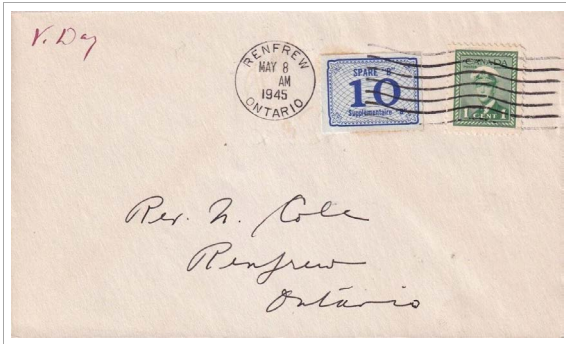 V. Day
RENFREW
MAY 8
AM
1945
ONTARIO
SPARE "B"
10
Supplémentaire "B"
CANADA
1 CENT 1
Rev. N. Cole
Renfrew
Ontario